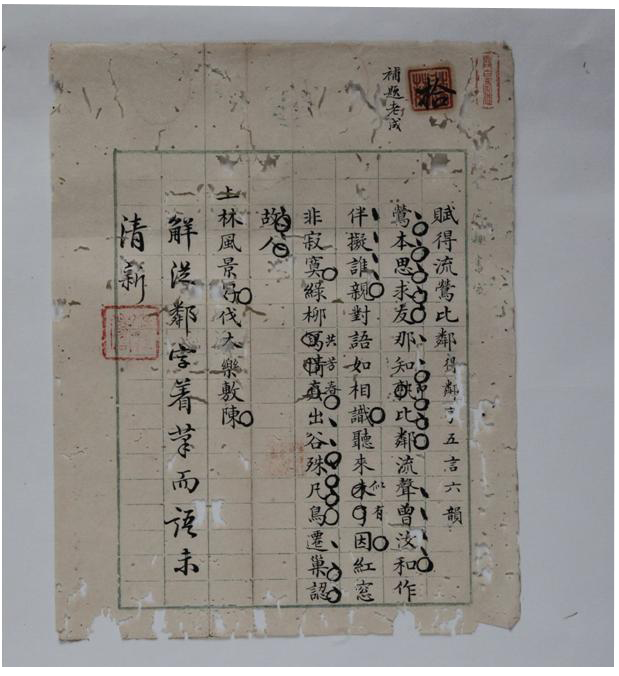 拾
補題老成
賦得流鶯比鄰 得鄰字五言六韻
鶯本思求友那知比鄰流聲曾汝和作
伴擬誰親對語如相識聽來因紅窓
似有
非寂寞綠柳出谷殊凡鳥遷巢認
共芳春
故人
上林風景伐木樂敷陳
解從鄰字着筆而語未
清新